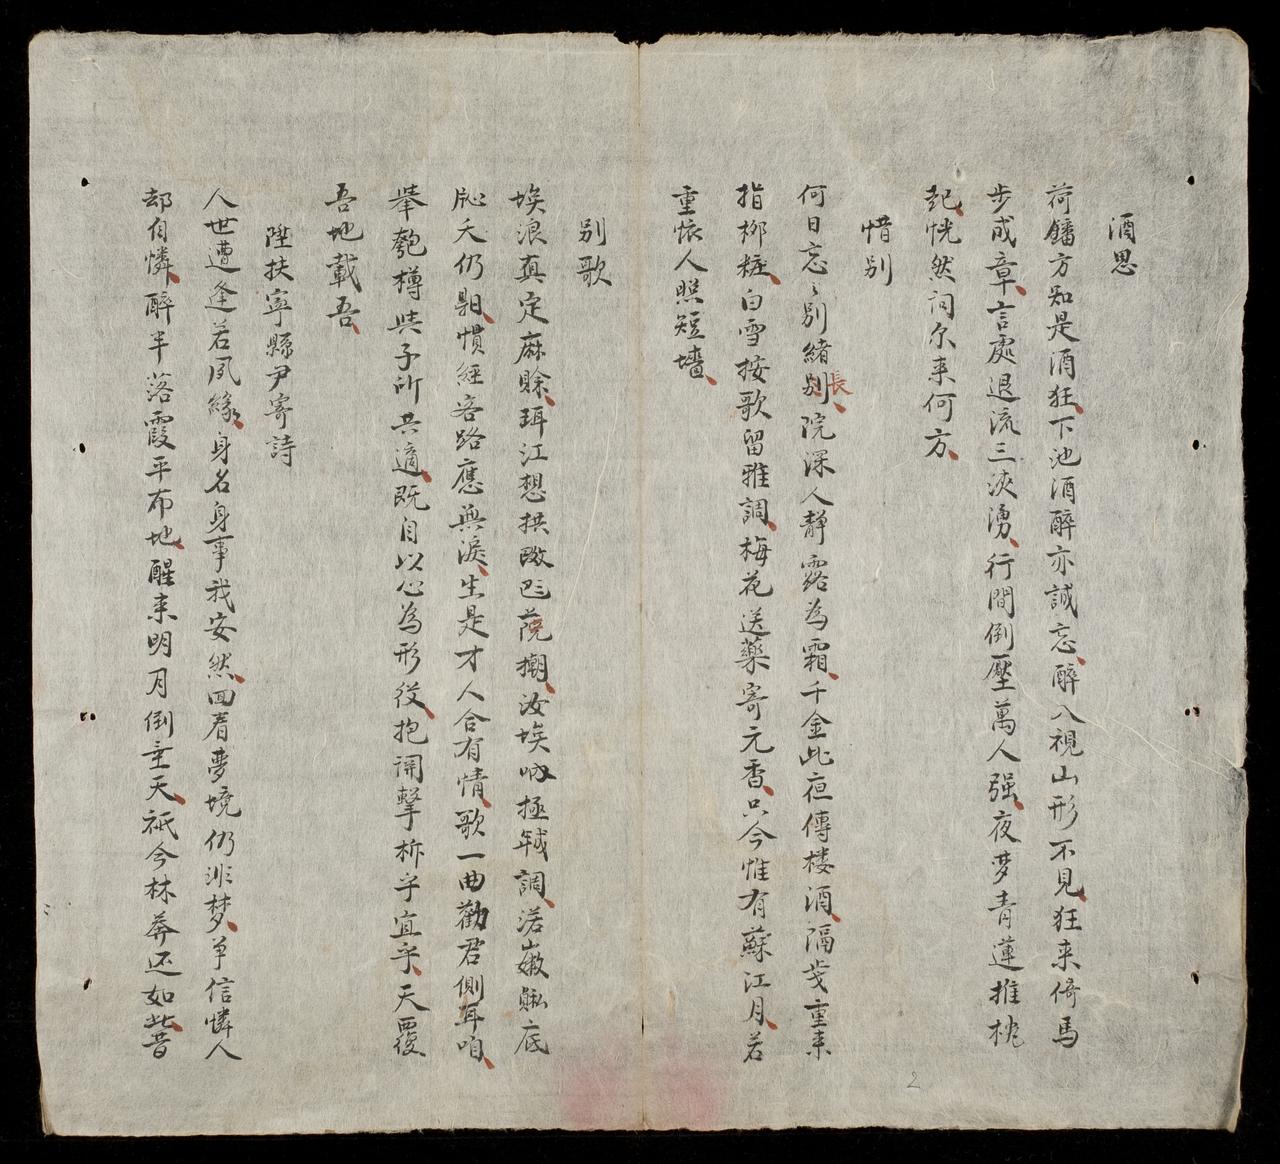 酒思
荷鍤方知是酒狂下池酒醉亦誠忘醉入視山形不見狂来倚馬
步成章言處退流三浹湧行間倒壓萬人强夜夢青蓮推枕
起恍然詞尔来何方
惜别
何日忘〻别緒長别院深人静露為霜千金此夜傳楼酒隔歲重来
指柳粧白雪按歌留雅調梅花送藥寄元香只今惟有蘇江月若
重懷人照短墻
别歌
埃浪真定麻賒珥江想拱㘋𠀧𦹵𢴇汝埃㕸拯𢧚調渃𡽫𩵜底
𣱆天仍𣇞慣經客路應無淚生是才人合有情歌一曲勸君側耳咱
舉匏樽與子所共適既自以心為形役抱関擊柝乎宜乎天覆
吾地載吾
陞扶寧縣尹寄詩
人世遭逢若夙緣身名身事我安然回看夢境仍非梦争信憐人
却自憐醉半落霞平布地醒来明月倒垂天祇今林莽还如昔
2